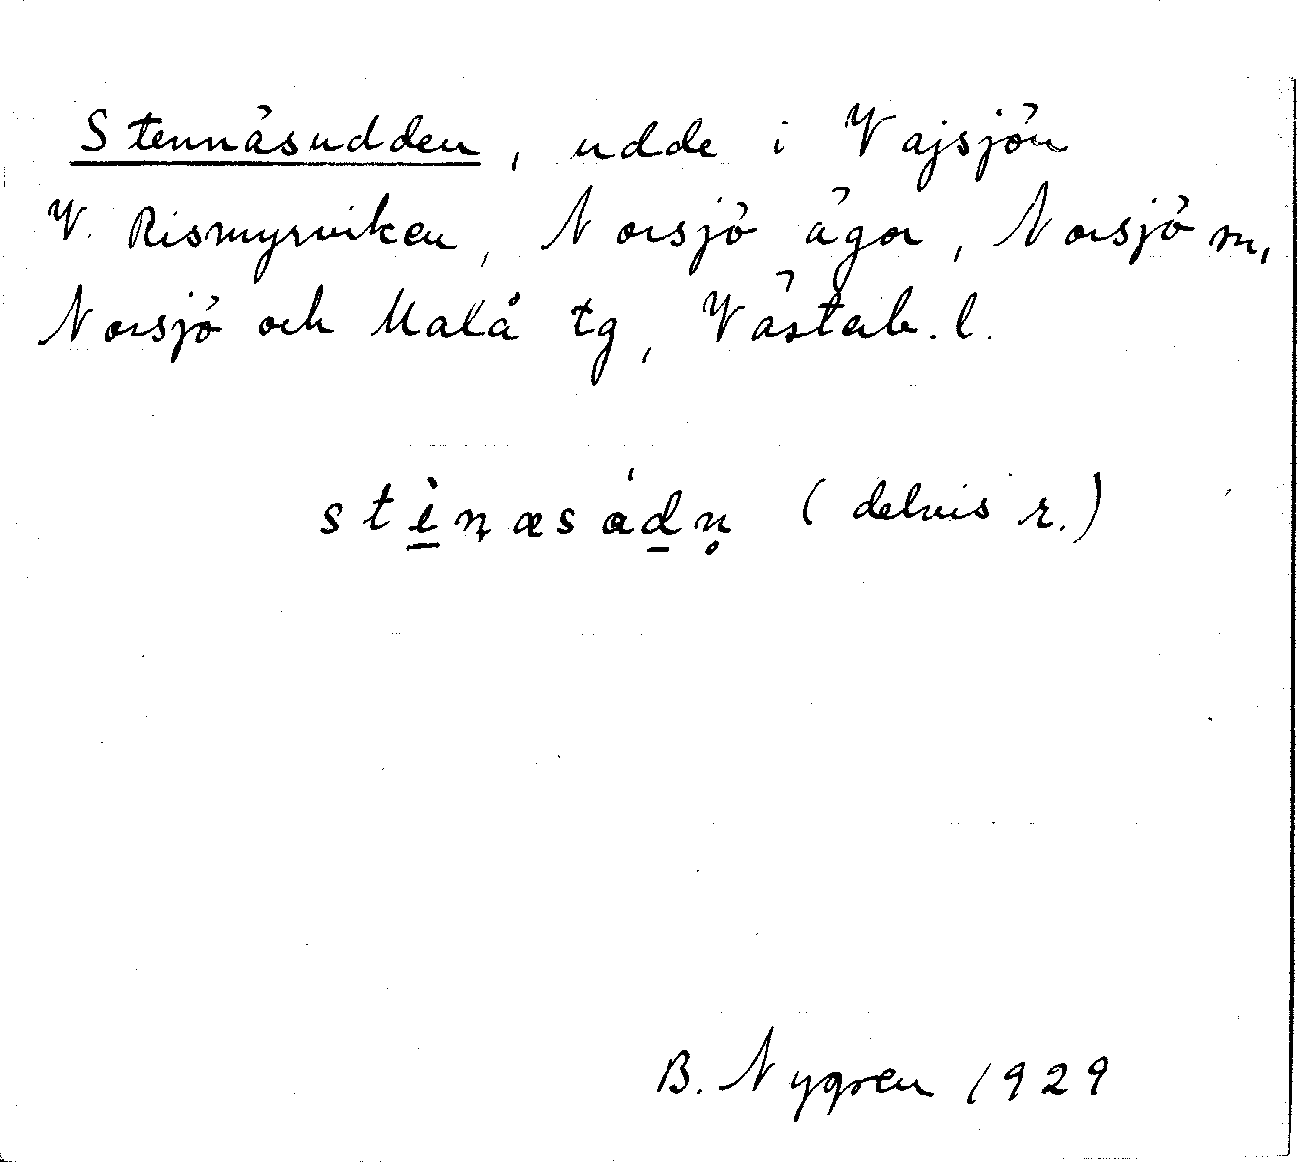 Stennäsudden, udde i Vajsjön
V. Rismyrviken, Norsjö ägor, Norsjö sn,
Norsjö och Malå tg, Västerb. l.
stìnæsádn̥ (delvis r.)
B. Nygren 1929